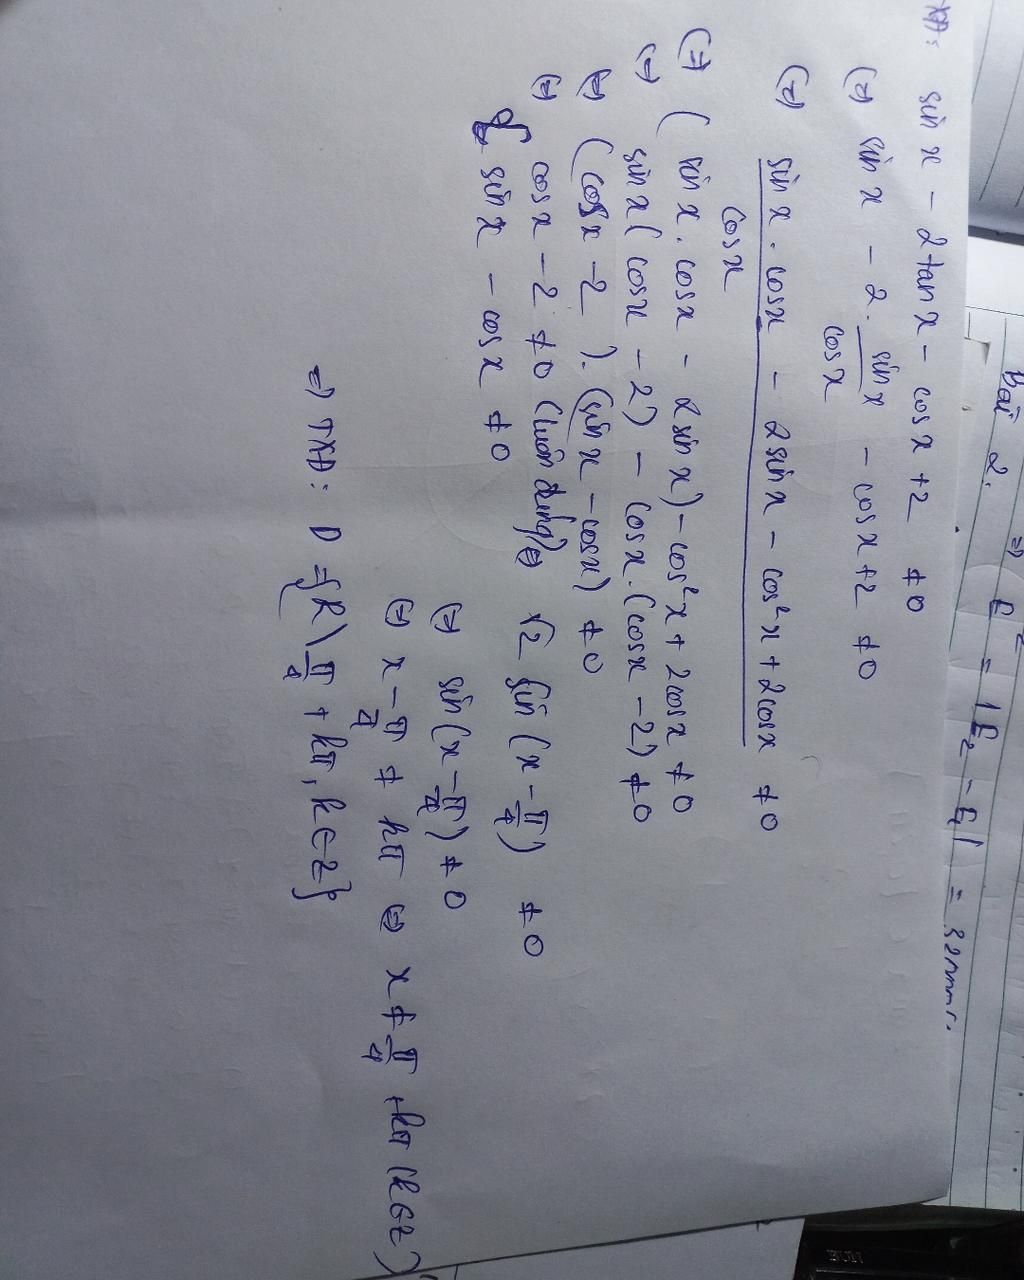 Bài 2. ⇒ E = |E₂ − E₁| =
TXĐ: sin x − 2tan x − cos x + 2 ≠ 0
(=) sin x − 2. sin x / cos x − cos x + 2 ≠ 0
(=) sin x . cos x − 2 sin x − cos² x + 2cos x / cos x ≠ 0
(=) ( sin x . cos x − 2 sin x ) − cos² x + 2cos x ≠ 0
(=) sin x ( cos x − 2 ) − cos x . ( cos x − 2 ) ≠ 0
(=) ( cos x − 2 ) . ( sin x − cos x ) ≠ 0
(=) { cos x − 2 ≠ 0 (luôn đúng)
sin x − cos x ≠ 0 (=) √2 sin ( x − π/4 ) ≠ 0
(=) sin ( x − π/4 ) ≠ 0
(=) x − π/4 ≠ kπ (=) x ≠ π/4 + kπ (k∈Z)
=) TXĐ: D = {R \ π/4 + kπ, k ∈ Z}